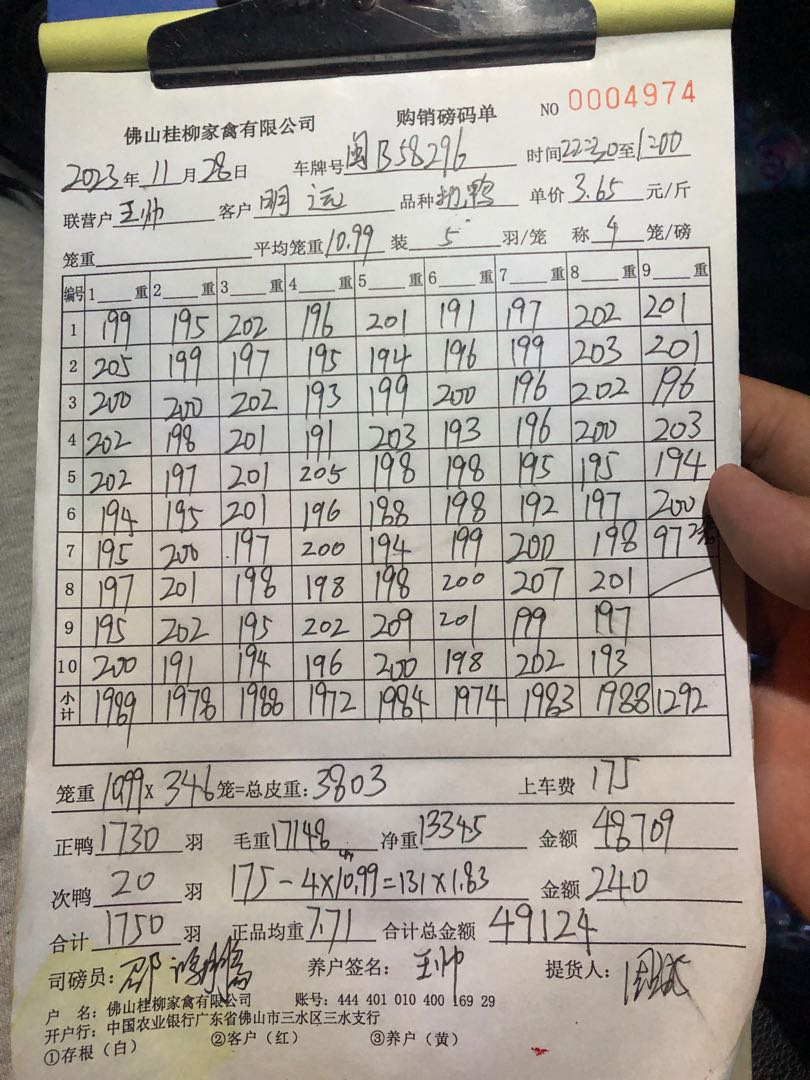 佛山桂柳家禽有限公司 购销磅码单 NO 0004974
2023年11月28日 车牌号闽B58296 时间22:30至1:00
联营户王帅 客户明远 品种 鸭 单价3.65元/斤
笼重 平均笼重10.99 装5羽/笼 称4笼/磅
编号 1 重 2 重 3 重 4 重 5 重 6 重 7 重 8 重 9 重
1 199 195 202 196 201 191 197 202 201
2 205 199 197 195 194 196 199 203 201
3 200 200 202 193 199 200 196 202 196
4 202 198 201 191 203 193 196 200 203
5 202 197 201 205 198 198 195 195 194
6 194 195 201 196 188 198 192 197 200
7 195 200 197 200 194 199 200 198 97
8 197 201 198 198 198 200 207 201
9 195 202 195 202 209 201 199 197
10 200 191 194 196 200 198 202 193
小计 1989 1978 1988 1972 1984 1974 1983 1988 1292
笼重10.99×346笼=总皮重:3803 上车费175
正鸭1730羽 毛重17148 净重13345 金额48709
次鸭20羽 175-4×10.99=131×1.83 金额240
合计1750羽 正品均重7.71 合计总金额49124
司磅员: 养户签名:王帅 提货人:
户 名:佛山桂柳家禽有限公司 账号:444 401 010 400 169 29
开户行:中国农业银行广东省佛山市三水区三水支行
①存根(白) ②客户(红) ③养户(黄)